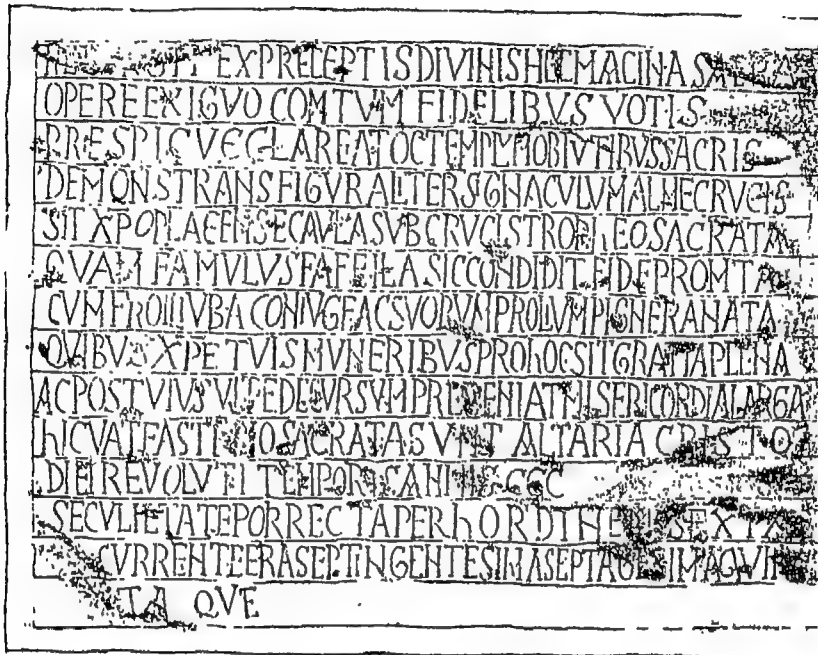 EX PRECEPTIS DIVINIS HEC MACINA
OPERE EXIGVO COMTVM FIDELIBVS VOTIS
PRESPICVE CLAREAT OC TEMPLVM OBTVTIBVS SACRIS
DEMONSTRANS FIGVRALITER SIGNACVLVM ALME CRVCIS
SIT XPO PLACENS EC AVLA SVB CRVCIS TROPhEO SACRATA
QVAM FAMVLVS FAFEILA SIC CONDIDIT FIDE PROMTA
CVM FROILIVBA CONIVGE AC SVORVM PROLIVM PIGNERA NATA
QVIBVS XPE TVIS MVNERIBVS PRO hOC SIT GRATIA PLENA
AC POST VIVS VITE DECVRSVM PREVENIAT MISERICORDIA LARGA
hIC VATE SACRATA SVNT ALTARIA CRISTO
DIEI REVOLVTI TEMPORIS ANNIS CCC
SECVLI ETATE PORRECTA PER hORDINEM SEXTA
CVRRENTE ERA SEPTINGENTESIMA SEPTAGESIMA QVIN
TA QVE